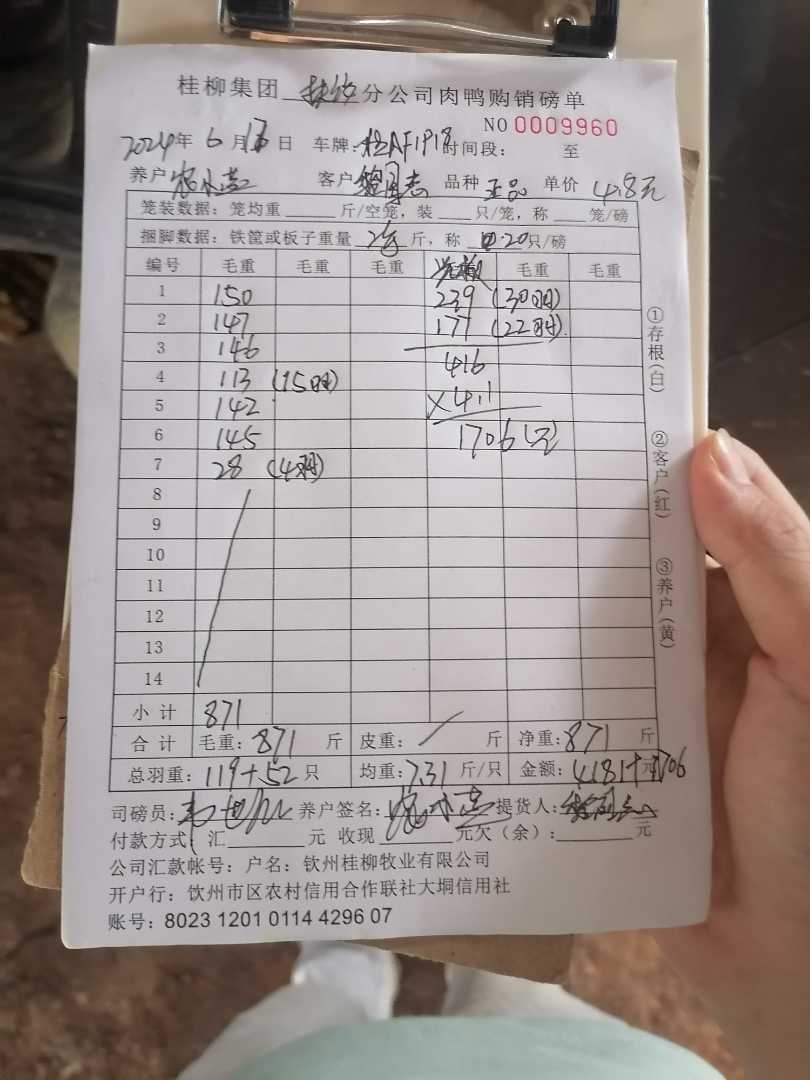 桂柳集团 扶绥 分公司肉鸭购销磅单
NO 0009960
2024年 6月13日 车牌: 桂AF1918 时间段: 至
养户 客户 品种 正品 单价 4.8元
笼装数据: 笼均重 斤/空笼, 装 只/笼, 称 笼/磅
捆脚数据: 铁筐或板子重量 斤, 称 20只/磅
编号 毛重 毛重 毛重 毛重 毛重
1 150 239 (30羽)
2 147 177 (22羽)
3 146 416
4 113 (15羽) ×4.1
5 142
6 145 1706元
7 28 (4羽)
8
9
10
11
12
13
14
小计 871
合计 毛重: 871 斤 皮重: / 斤 净重: 871 斤
总羽重: 119+52 只 均重: 7.31 斤/只 金额: 4181+1706 元
司磅员: 养户签名: 提货人:
付款方式: 汇 元 收现 元欠(余): 元
公司汇款帐号: 户名: 钦州桂柳牧业有限公司
开户行: 钦州市区农村信用合作联社大垌信用社
账号: 8023 1201 0114 4296 07
①存根(白)
②客户(红)
③养户(黄)